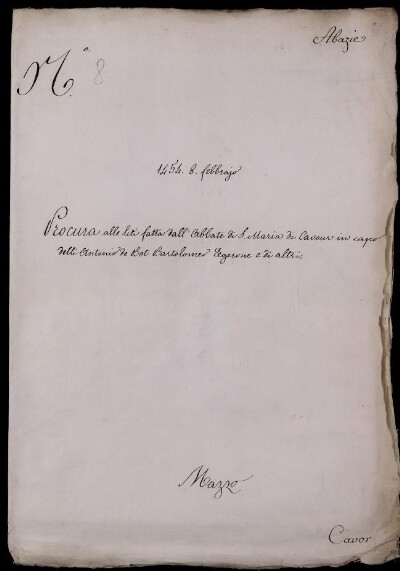 Abazie
N.° 8
1454. 8. febbrajo
Procura alle liti fatta dall'Abbate di S. Maria di Cavour in capo
delli Antonio de Bot Bartolomeo e di altri.
Mazzo
Cavor